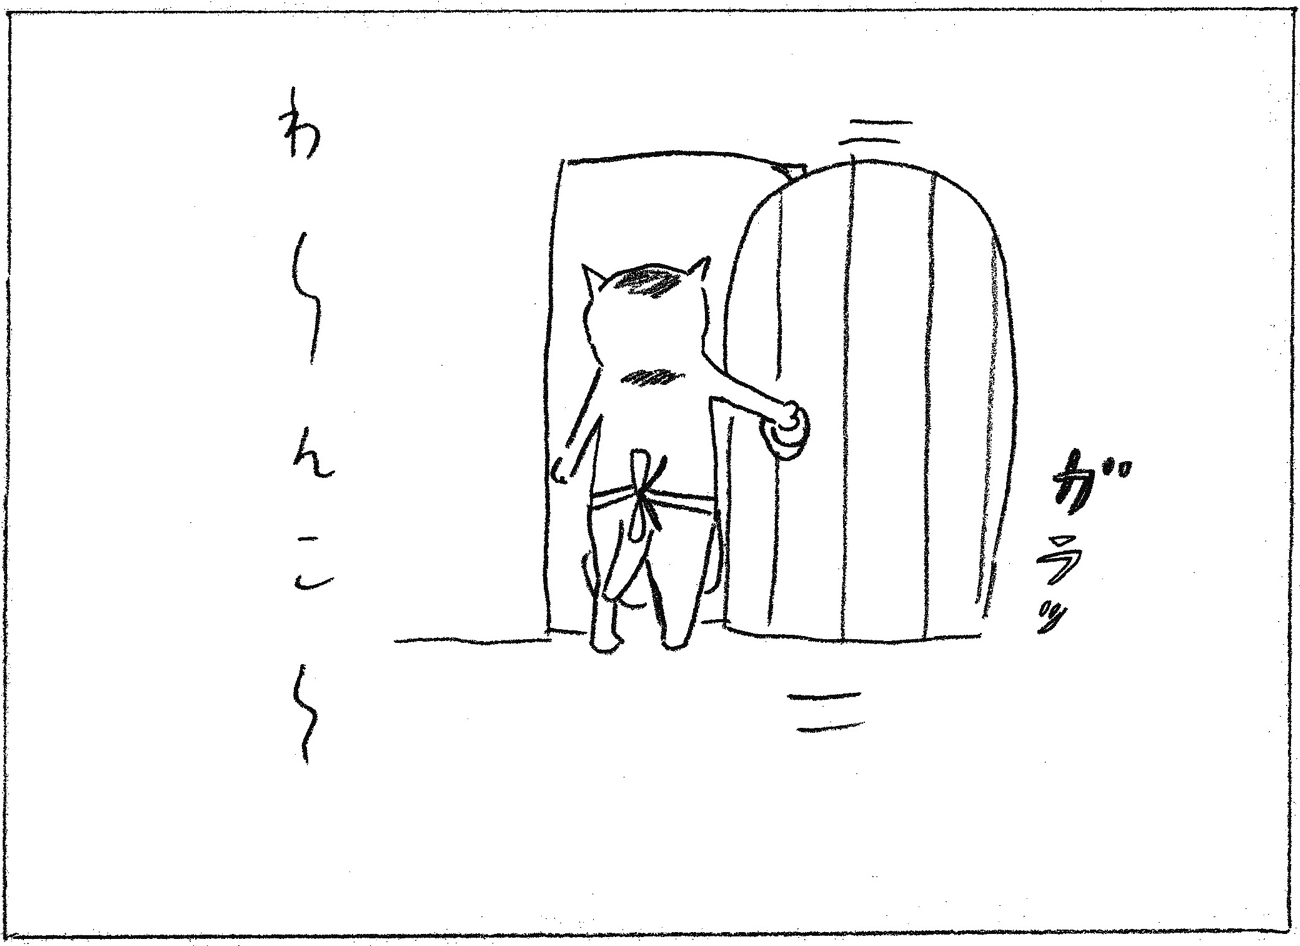 ガラッ
わ〜んこ〜